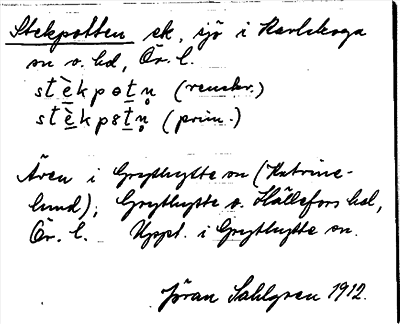 Stekpotten sk, sjö i Karlskoga
sn o. hd, Ör. l.
stèkpotn̥ (renskr.)
stèkpotn̥ (prim.)
Även i Grythytte sn (Katrine-
lund), Grythytte o. Hällefors hd,
Ör. l. Uppt. i Grythytte sn.
Jöran Sahlgren 1912.